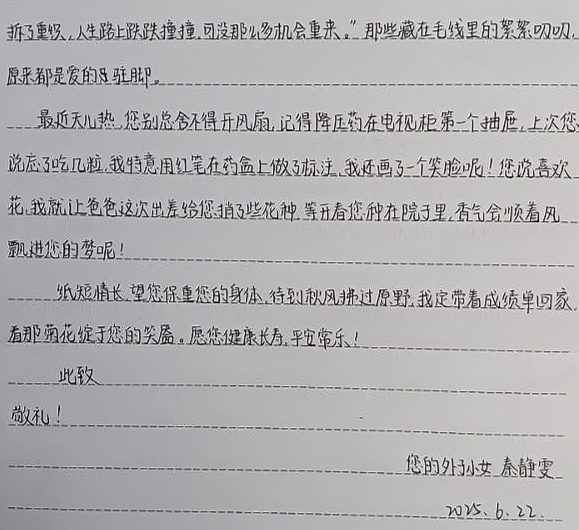 拆了重织，人生路上跌跌撞撞，可没那么多机会重来。”那些藏在毛线里的絮絮叨叨，
原来都是爱的驻脚。
最近天儿热，您别总舍不得开风扇，记得降压药在电视柜第一个抽屉，上次您
说忘了吃几粒，我特意用红笔在药盒上做了标注，我还画了一个笑脸呢！您说喜欢
花，我就让爸爸这次出差给您捎了些花种，等开春您种在院子里，香气会顺着风
飘进您的梦呢！
纸短情长，望您保重您的身体，待到秋风拂过原野，我定带着成绩单回家，
看那菊花绽于您的笑靥。愿您健康长寿，平安常乐！
此致
敬礼！
您的外孙女 秦静雯
2025.6.22.